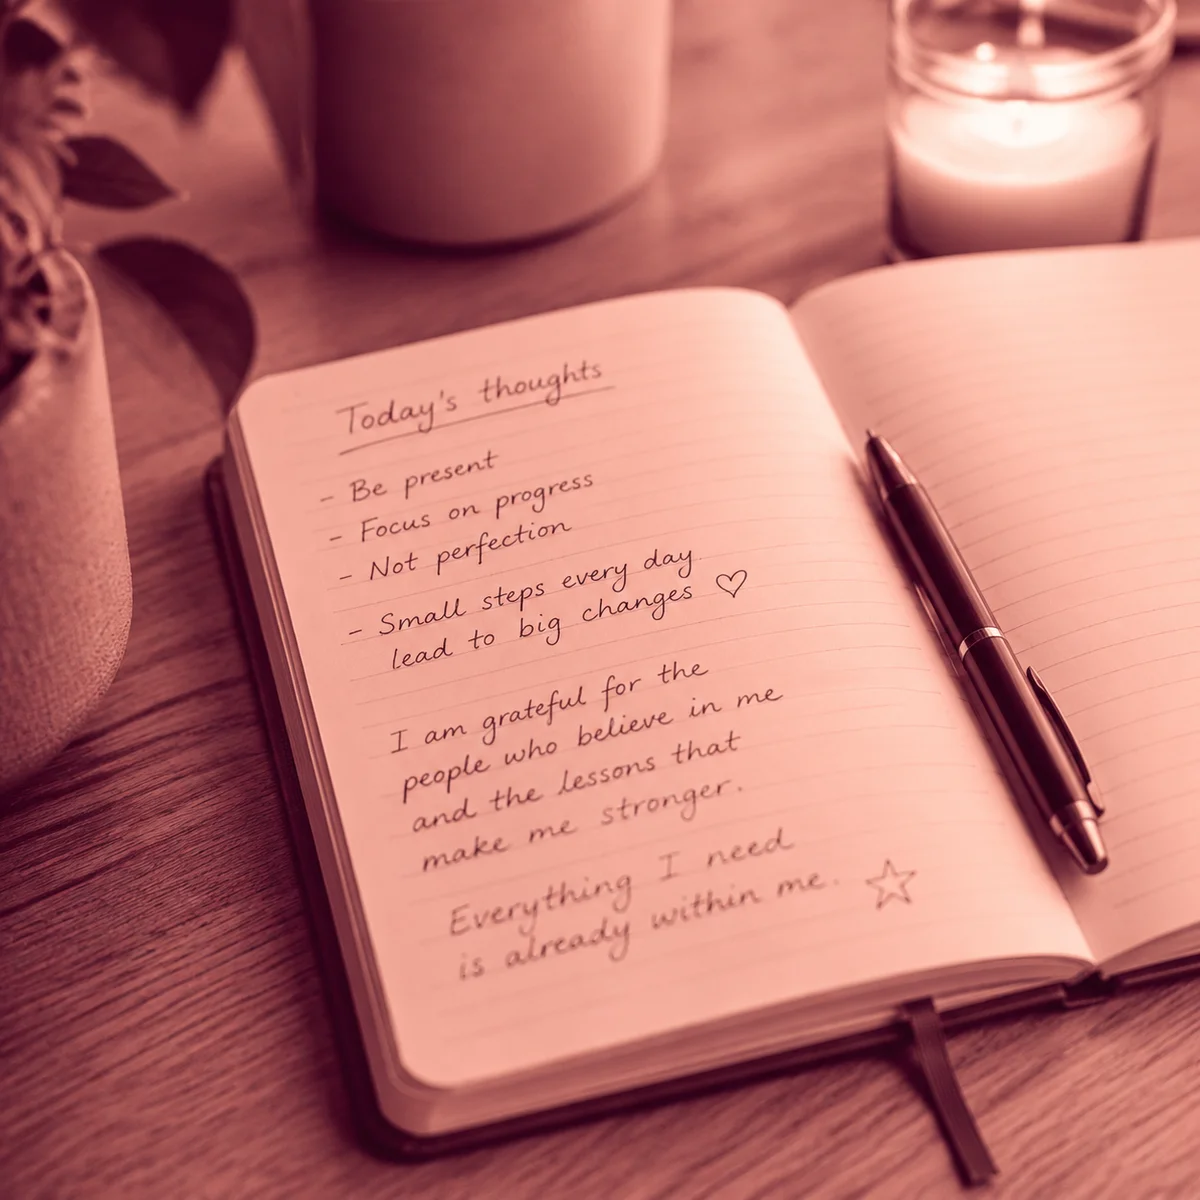 Today's thoughts
- Be present
- Focus on progress
- Not perfection
- Small steps every day
lead to big changes ♡
I am grateful for the
people who believe in me
and the lessons that
make me stronger.
Everything I need
is already within me. ☆